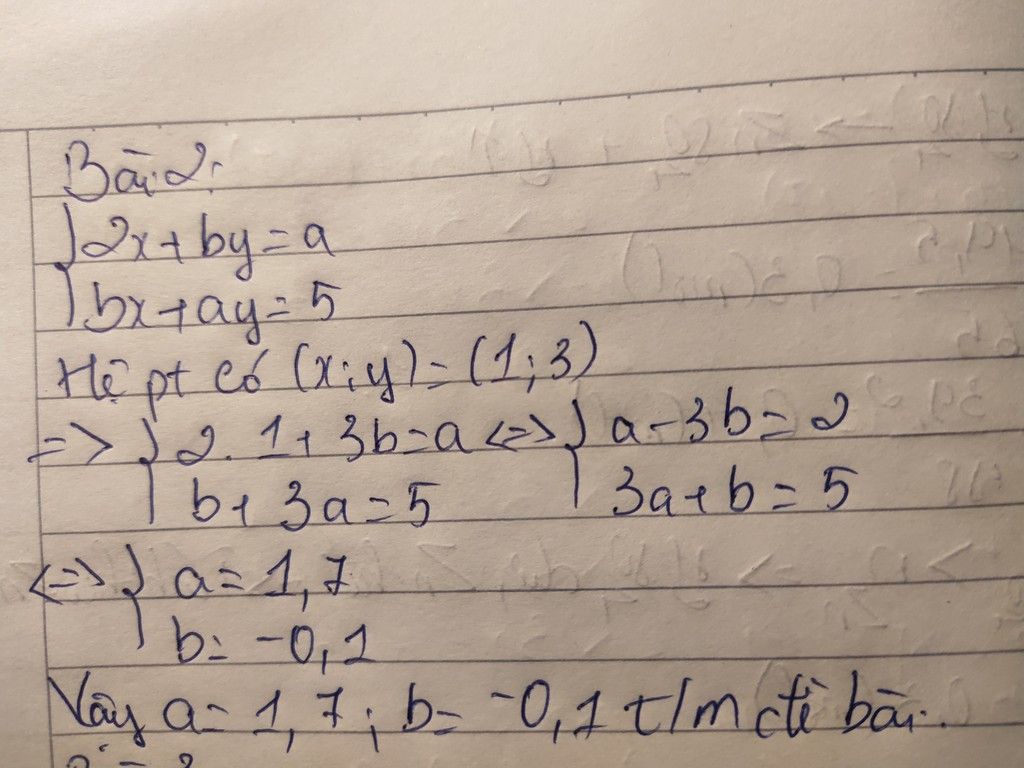 Bài 2:
{2x+by=a
{bx+ay=5
Hệ pt có (x;y)=(1;3)
=> {2.1+3b=a <=> {a-3b=2
{b+3a=5 {3a+b=5
<=> {a=1,7
{b=-0,1
Vậy a=1,7; b=-0,1 t/m đề bài.